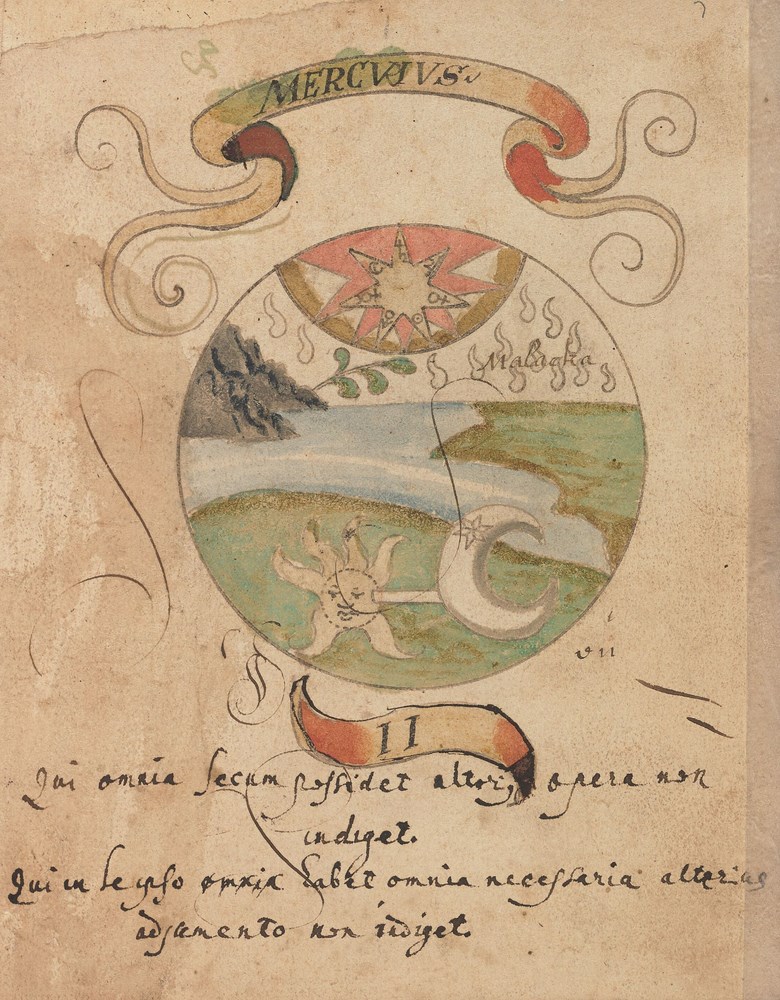 MERCVRIVS.
Malagna
vii
II
Qui omnia secum possidet alterius opera non
indiget.
Qui in se ipso omnia habet omnia necessaria alterius
adjumento non indiget.